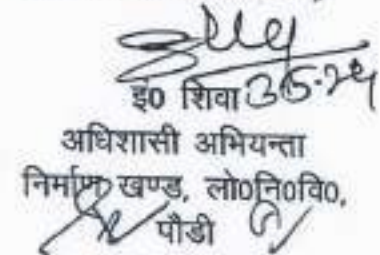 इ0 शिवा
अधिशासी अभियन्ता
निर्माण खण्ड, लो0नि0वि0,
पौडी